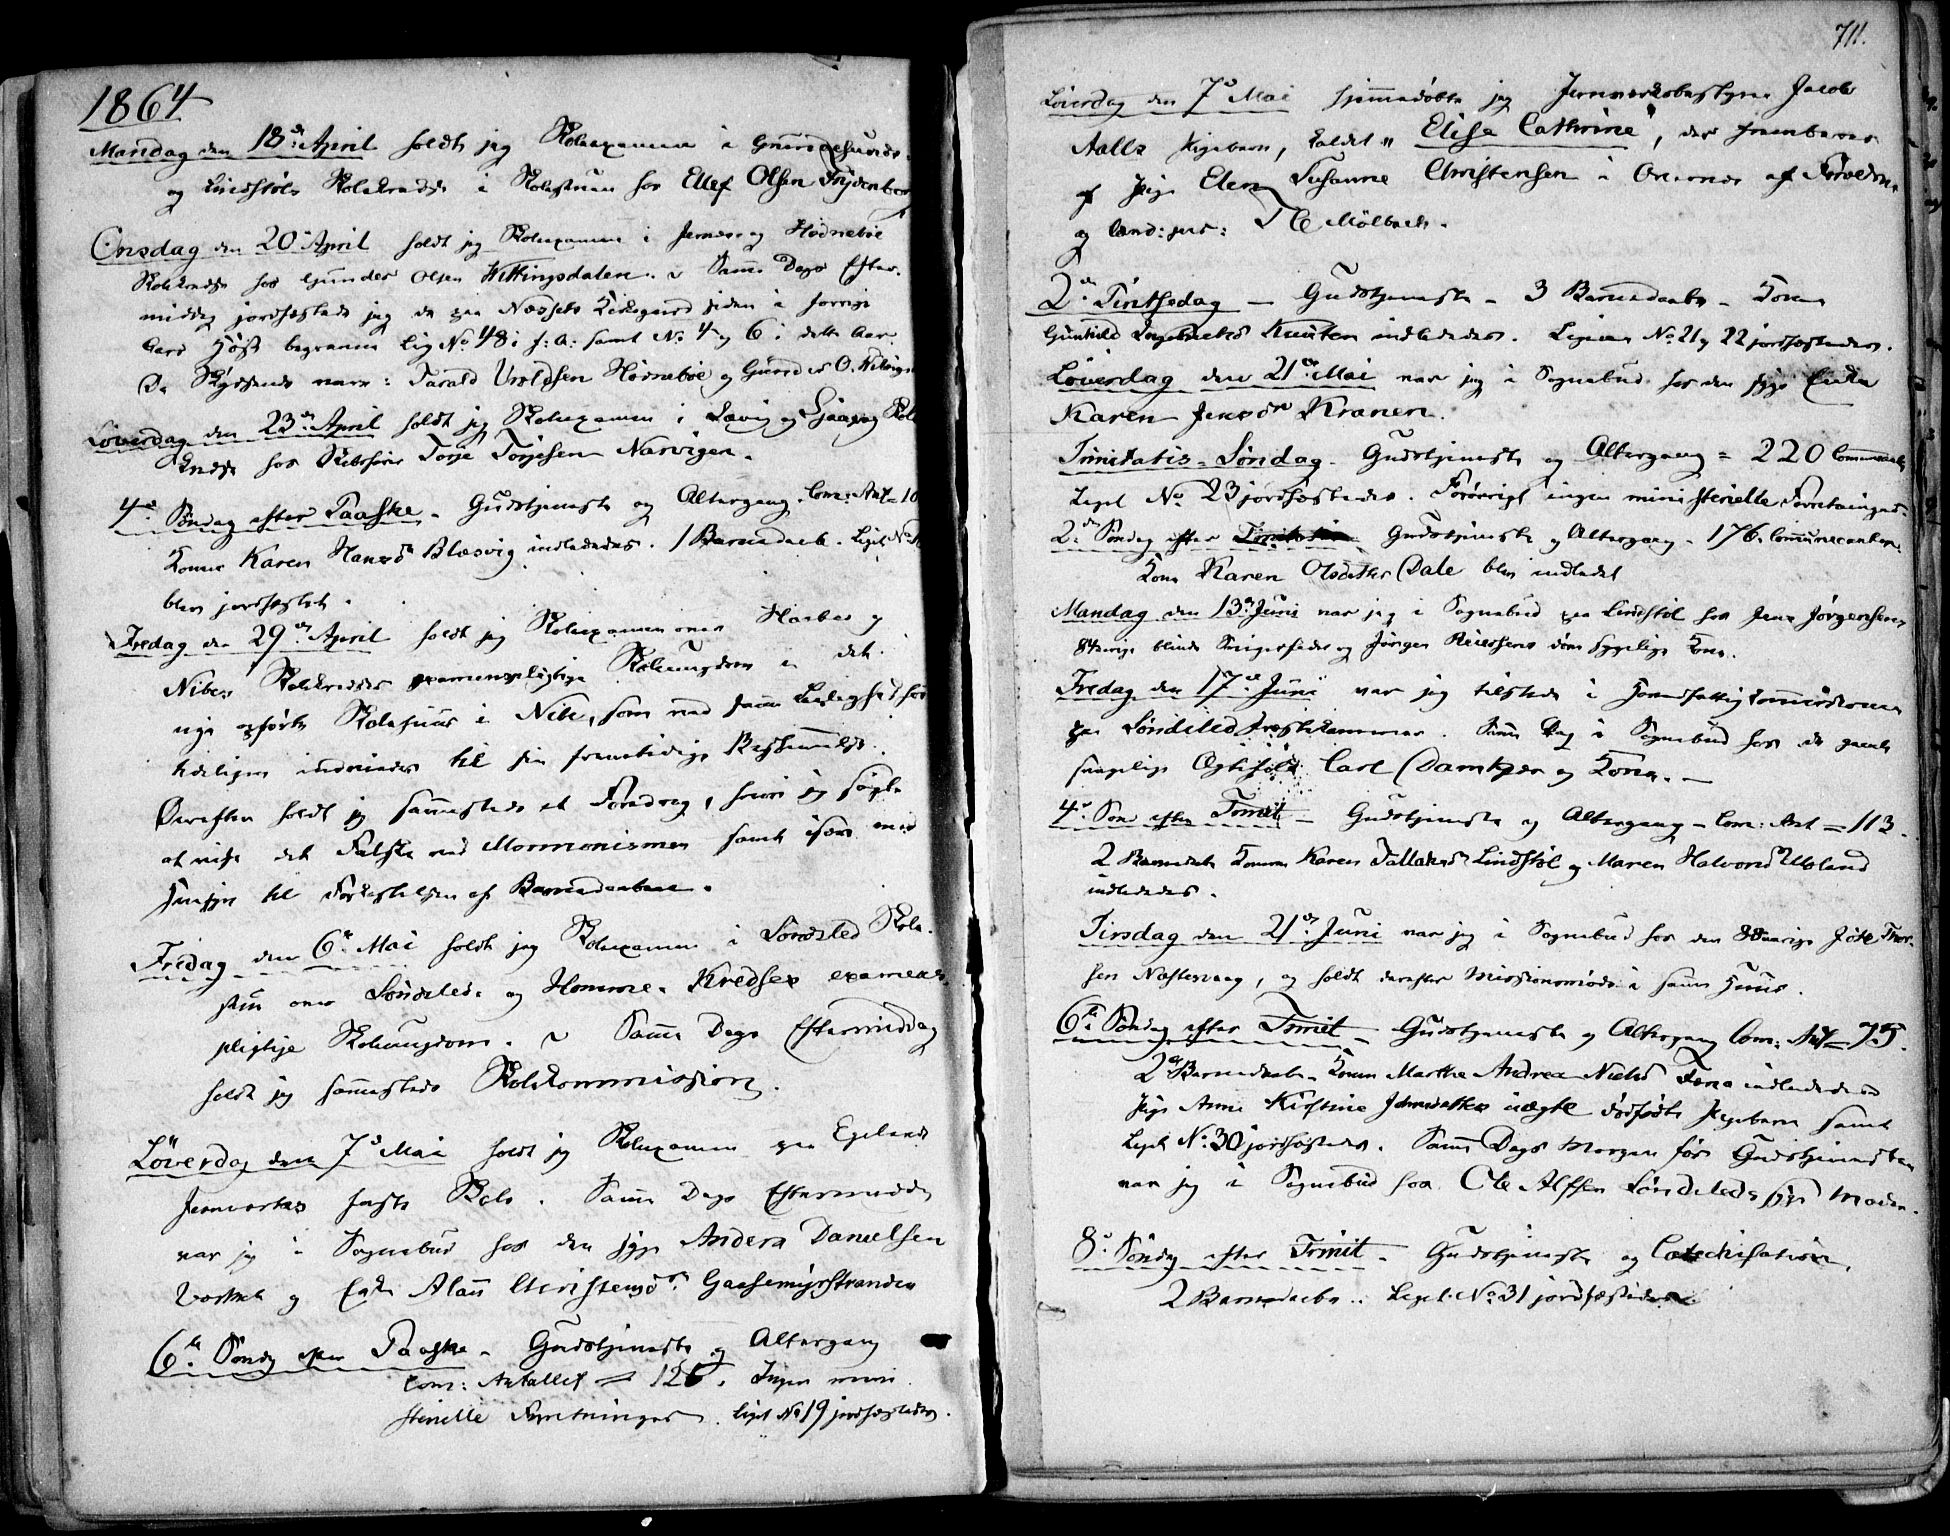 1864
Mandag den 18de April holdt jeg Skoleexamen i
og Lindstøls Skolekreds i Skolestuen hos Ellef Olsen Frydenborg
Onsdag den 20 April holdt jeg Skoleexamen i Jernes og Hødnebøe
Skolekreds hos Gunder Olsen Hvittingsdalen. Samme Dags Efter-
middag jordfæstede jeg de paa Næssets Kirkegaard siden i forrige
Aars Høst begravne Lig No 48 i f: A: samt No 4 og 6 i dette Aar.
De vare: Tarald Hødnebøe og Gunder O.
Løverdag den 23de April holdt jeg Skoleexamen i Lavig og Skole
kreds hos Torje Torjesen Narvigen.
4de Søndag efter Paaske - Gudstjeneste og Altergang. Com: Ant = 10
Konen Karen Hansdr Blæsvig indledet. 1 Barnedaab. Liget No
blev jordfæstet.
Fredag den 29de April holdt jeg Skoleexamen over og
Nibes Skolekredses examenspligtige Skoleungdom i det
nye opførte Skolehuus i Nibe, som ved samme Leilighed høi
tideligen indviedes til sin fremtidige Bestemmelse.
Derefter holdt jeg sammesteds et Foredrag, hvori jeg søgte
at vise det Falske ved Mormonismen samt især med
Hensyn til Forkastelsen af Barnedaaben.
Fredag den 6te Mai holdt jeg Skoleexamen i Søndeled Skole-
stue over Søndeleds og Homme- Kredsers examens-
pligtige Skoleungdom. Samme Dags Eftermiddag
holdt jeg sammesteds Skolekommission.
Löverdag den 7de Mai holdt jeg Skoleexamen paa Egelands
Jernverks faste Skole. Samme Dags Eftermiddag
var jeg i Sognebud hos den syge Anders Danielsen
og Enke Christensdr Gaasemyrstranden
6te Sönd. efter Paaske - Gudstjeneste og Altergang
Com: Antallet = 126. Ingen mini
sterielle Forretninger. Liget No 19 jordfæstedes.
711.
Löverdag den 7de Mai hjemmedøbte jeg Jernverksbestyrer Jacob
Aalls Pigebarn, kaldet "Elise Cathrine", der frembares
af Pige Elen Susanne Christensen i af Forældrene
og Cand: jur: Mölbach.
2den Pintsedag - Gudstjeneste - 3 Barnedaabe - Konen
Gunhild Knuten indlededes. Ligene No 21 og 22 jordfæstedes.
Löverdag den 21de Mai var jeg i Sognebud hos den syge Enke
Karen Jensdr Kranen.
Trinitatis-Søndag. Gudstjeneste og Altergang = 220 Communicanter
Liget No 23 jordfæstedes. Forøvrigt ingen ministerielle Forretninger.
2den Söndag efter Gudstjeneste og Altergang - 176 Communicanter.
Kone Karen Olsdatter Dale blev indledet
Mandag den 13de Juni var jeg i Sognebud paa Lindstøl hos Jens Jørgensens
84aarige blinde Svigerfader og Jörgen Reierssens døen sygelige Kone.
Fredag den 17de Juni var jeg tilstede i
paa Söndeled Præstekammer. Samme Dag i Sognebud hos de gamle
svagelige Ægtefolk Carl Damkjær og Kone. -
4de Sön efter Trinit - Gudstjeneste og Altergang - Com: Ant = 113.
2 Barnedaabe Konerne Karen Tallaksdr Lindstöl og Maren Halvorsdr Ulvland
indlededes.
Tirsdag den 21de Juni var jeg i Sognebud hos den aarige Thor-
sen, og holdt derefter Missionsmøde i samme Huus.
6te Søndag efter Trinit - Gudstjeneste og Altergang Com: Ant = 75.
2 Barnedaab. Konen Marthe Andrea Nielsdr indlededes
Pige Anne Kirstine uægte dødfødte Pigebarn samt
Liget No 30 jordfæstedes. Samme Dags Morgen før Gudstjenesten
var jeg i Sognebud hos Ole Alfsen Søndeleds syge Moder.
8de Söndag efter Trinit - Gudstjeneste og Catechisation.
2 Barnedaabe. Liget No 31 jordfæstedes